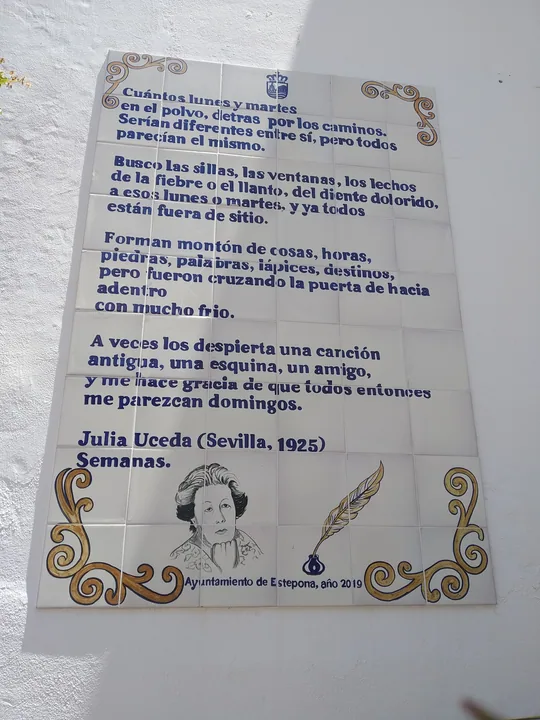 Cuántos lunes y martes
en el polvo, detras por los caminos.
Serían diferentes entre sí, pero todos
parecían el mismo.
Busco las sillas, las ventanas, los lechos
de la fiebre o el llanto, del diente dolorido,
a esos lunes o martes, y ya todos
están fuera de sitio.
Forman montón de cosas, horas,
piedras, palabras, lápices, destinos,
pero fueron cruzando la puerta de hacia
adentro
con mucho frio.
A veces los despierta una canción
antigua, una esquina, un amigo,
y me hace gracia de que todos entonces
me parezcan domingos.
Julia Uceda (Sevilla, 1925)
Semanas.
Ayuntamiento de Estepona, año 2019